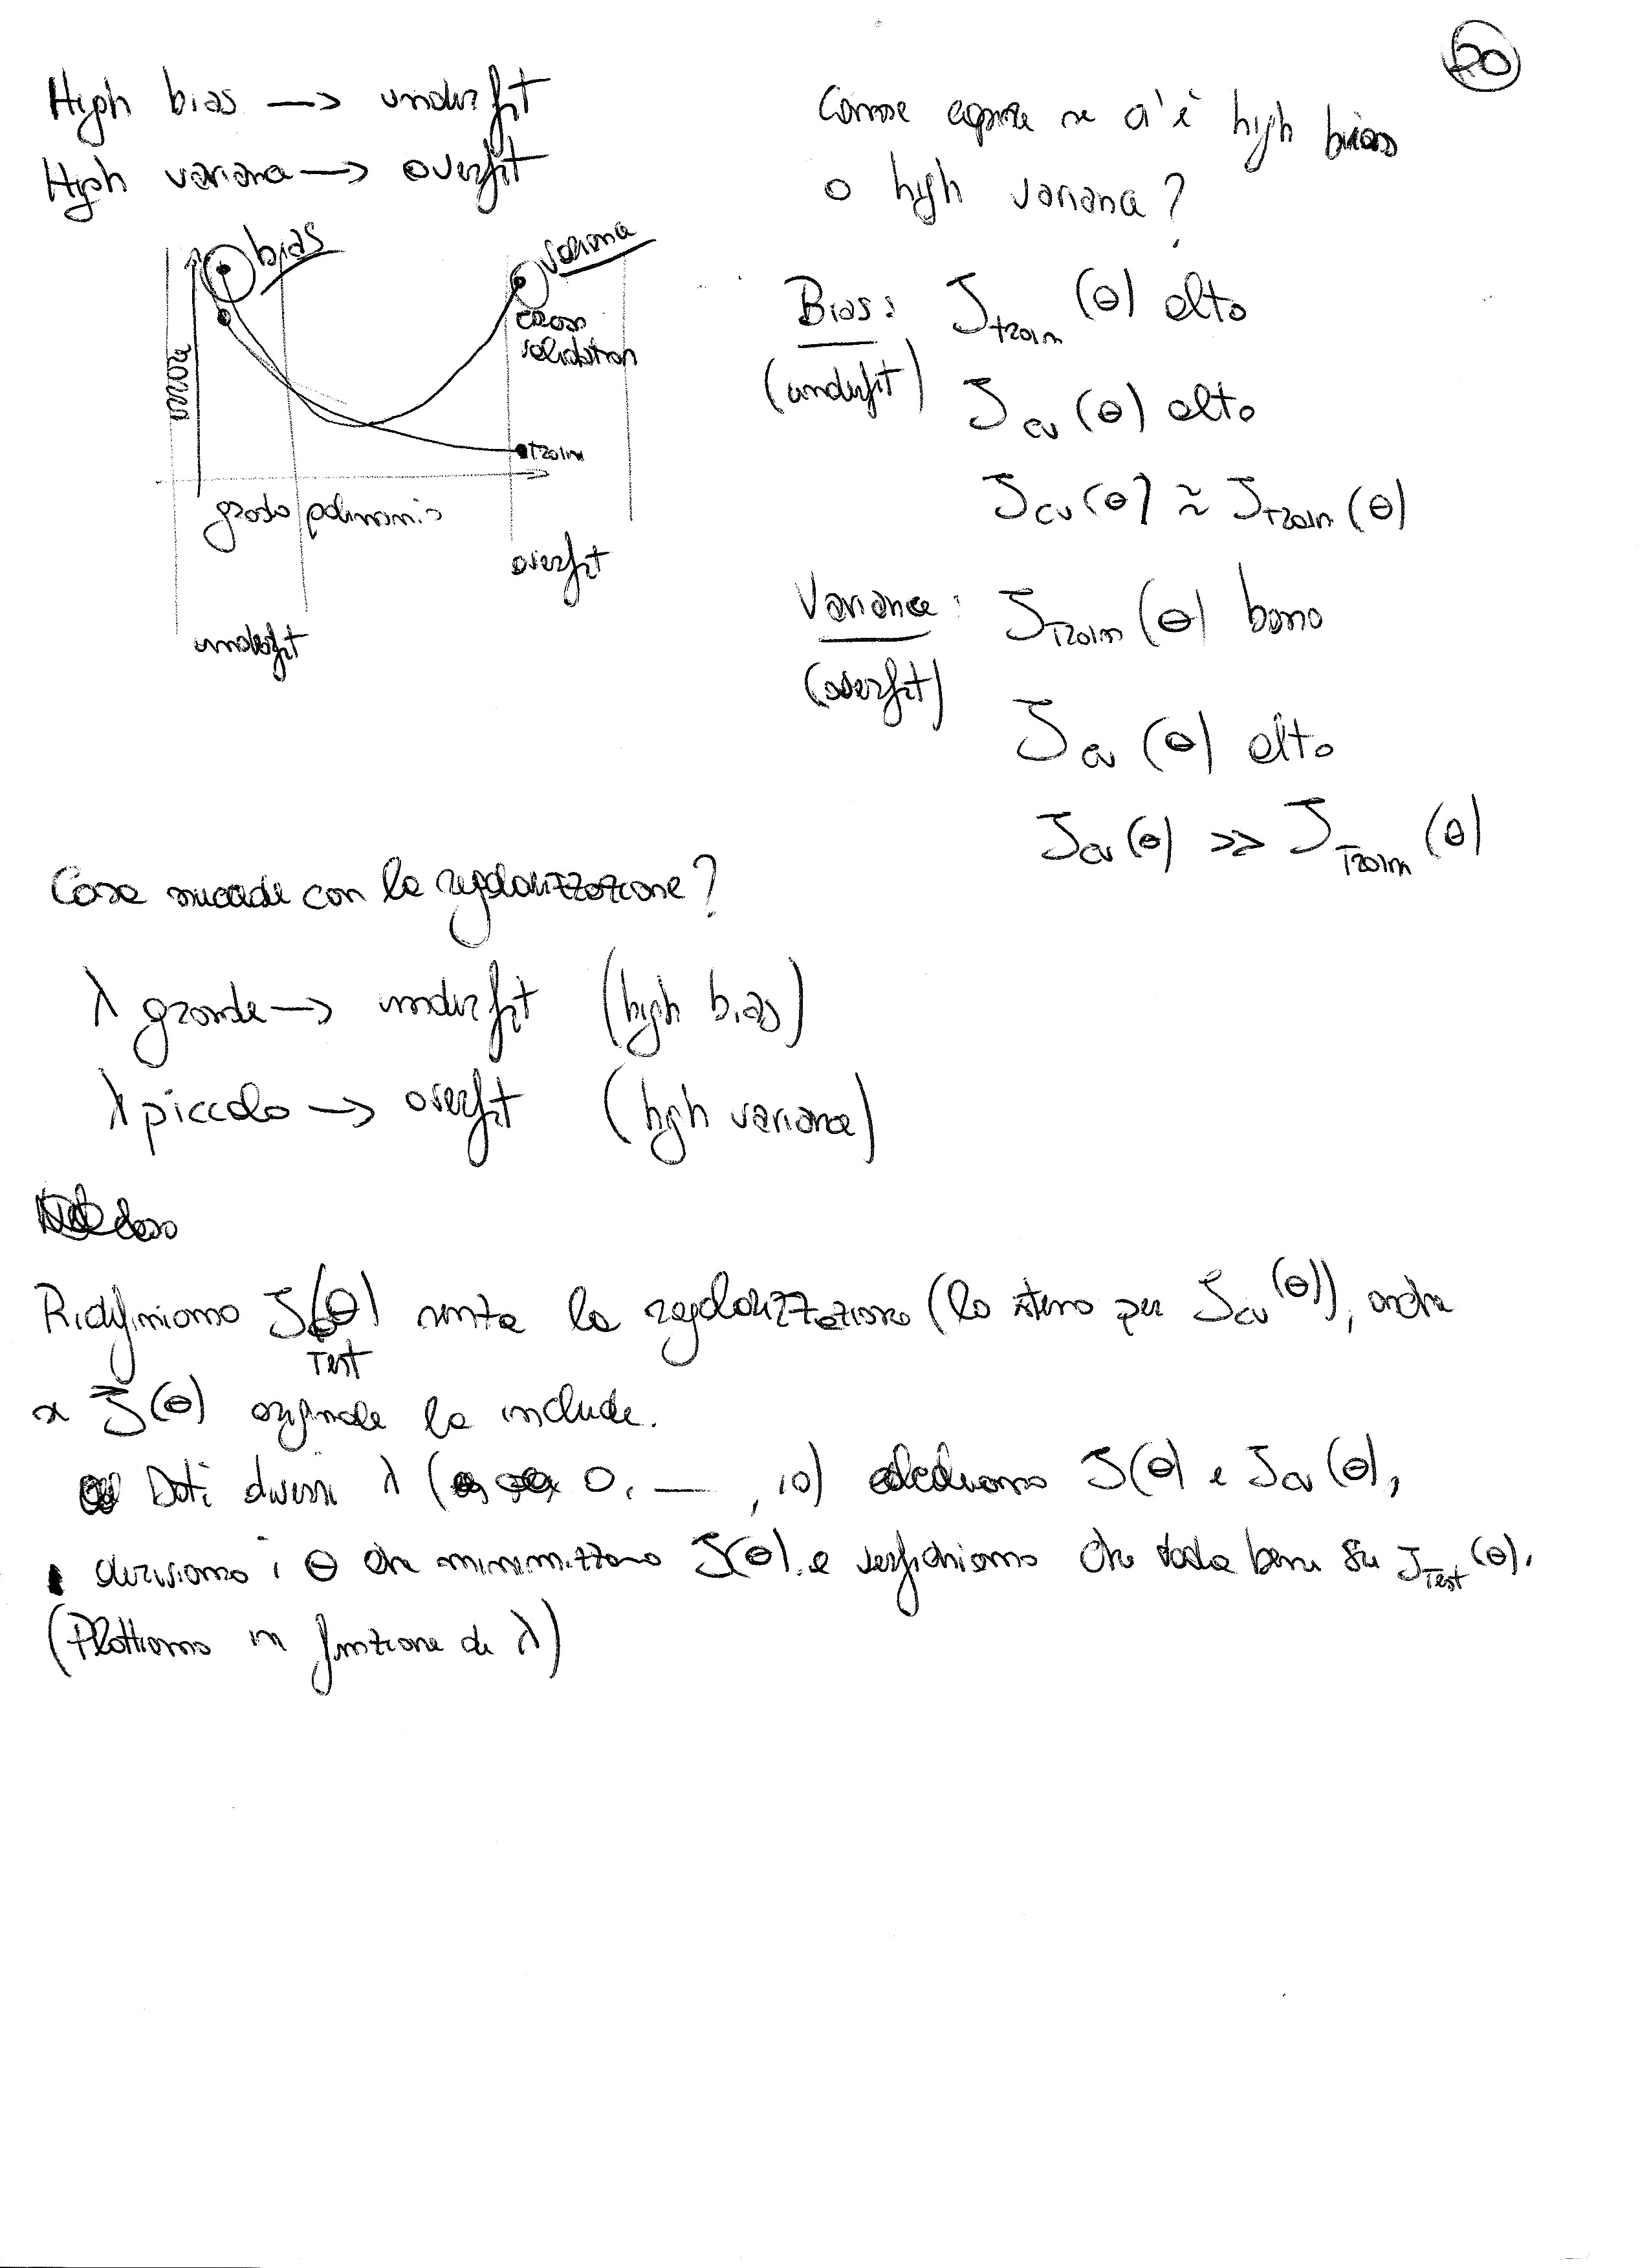 20
High bias → underfit
High variance → overfit
bias
variance
cross
validation
errore
train
grado polinomio
overfit
underfit
Come capire se c'è high bias
o high variance?
Bias: J_train (θ) alto
(underfit) J_cv (θ) alto
J_cv (θ) ≈ J_train (θ)
Variance: J_train (θ) bono
(overfit)
J_cv (θ) alto
J_cv (θ) >> J_train (θ)
Cosa succede con la regolarizzazione?
λ grande → underfit (high bias)
λ piccolo → overfit (high variance)
Ridefiniamo J_Test (θ) senza la regolarizzazione (lo stesso per J_cv (θ)), anche
se J(θ) originale la include.
Dati diversi λ (0, — , 10) calcoliamo J(θ) e J_cv (θ),
i θ che minimizzano J(θ) e verifichiamo che vada bene su J_Test (θ).
(Plottiamo in funzione di λ)